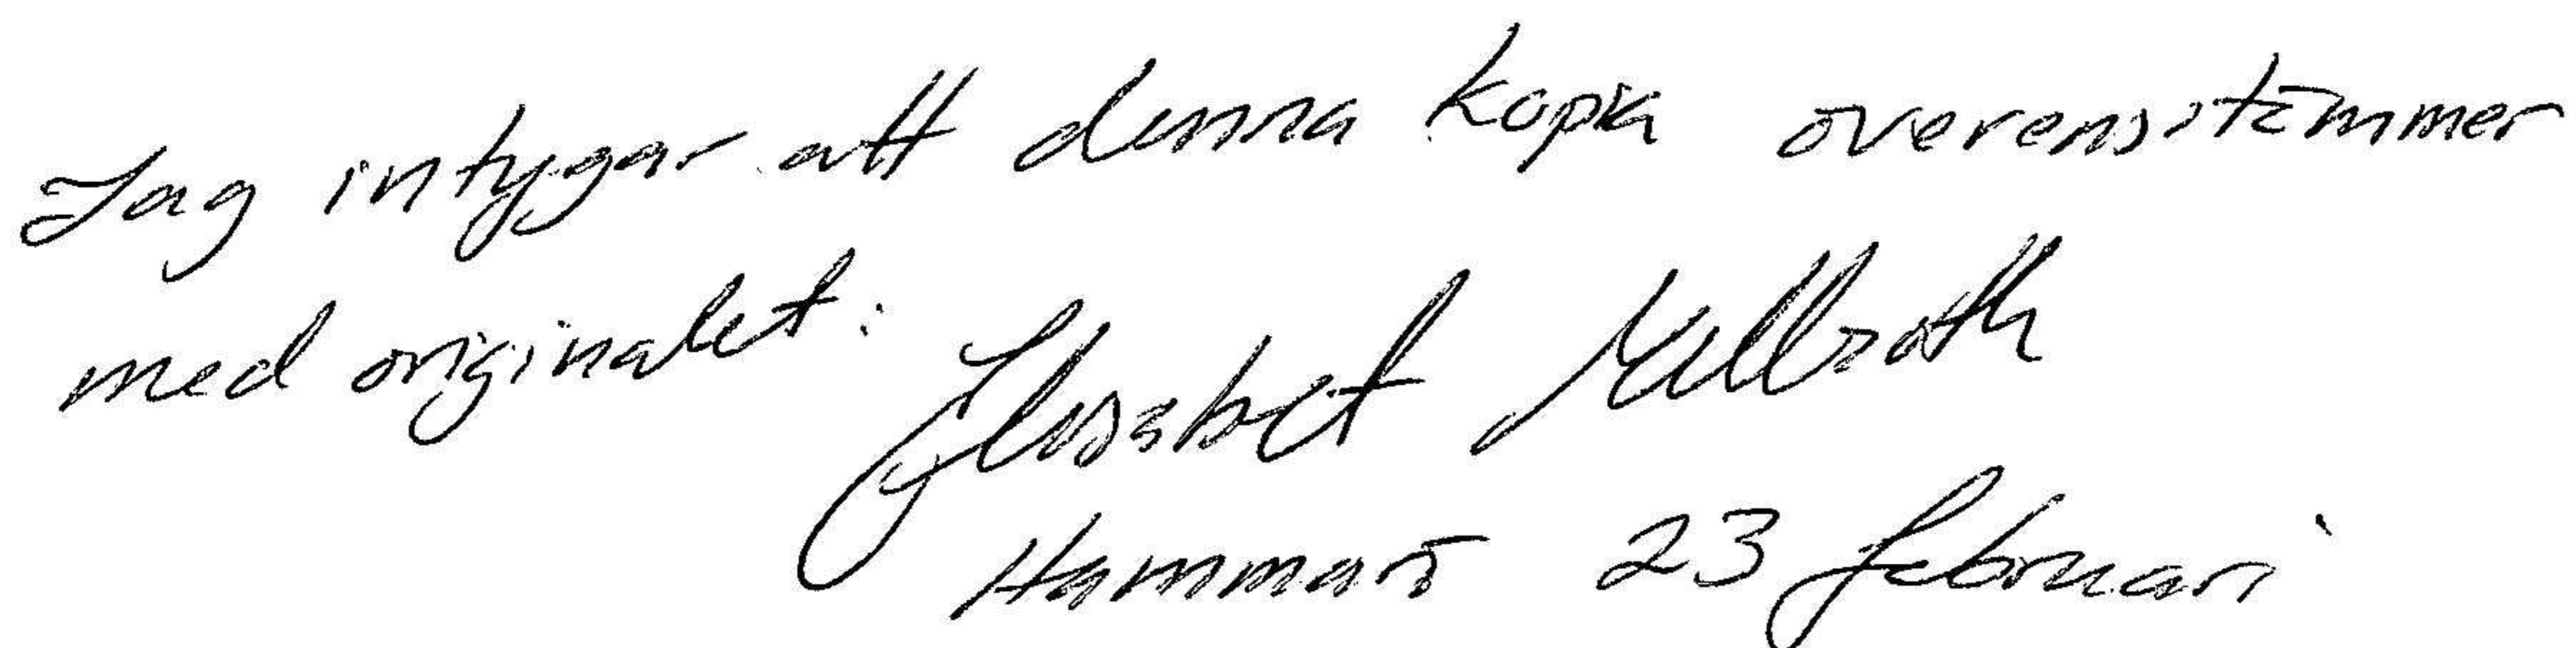 Jag intygar att denna kopia överensstämmer
med originalet:
Elisabet Kullroth
Hammarö 23 februari